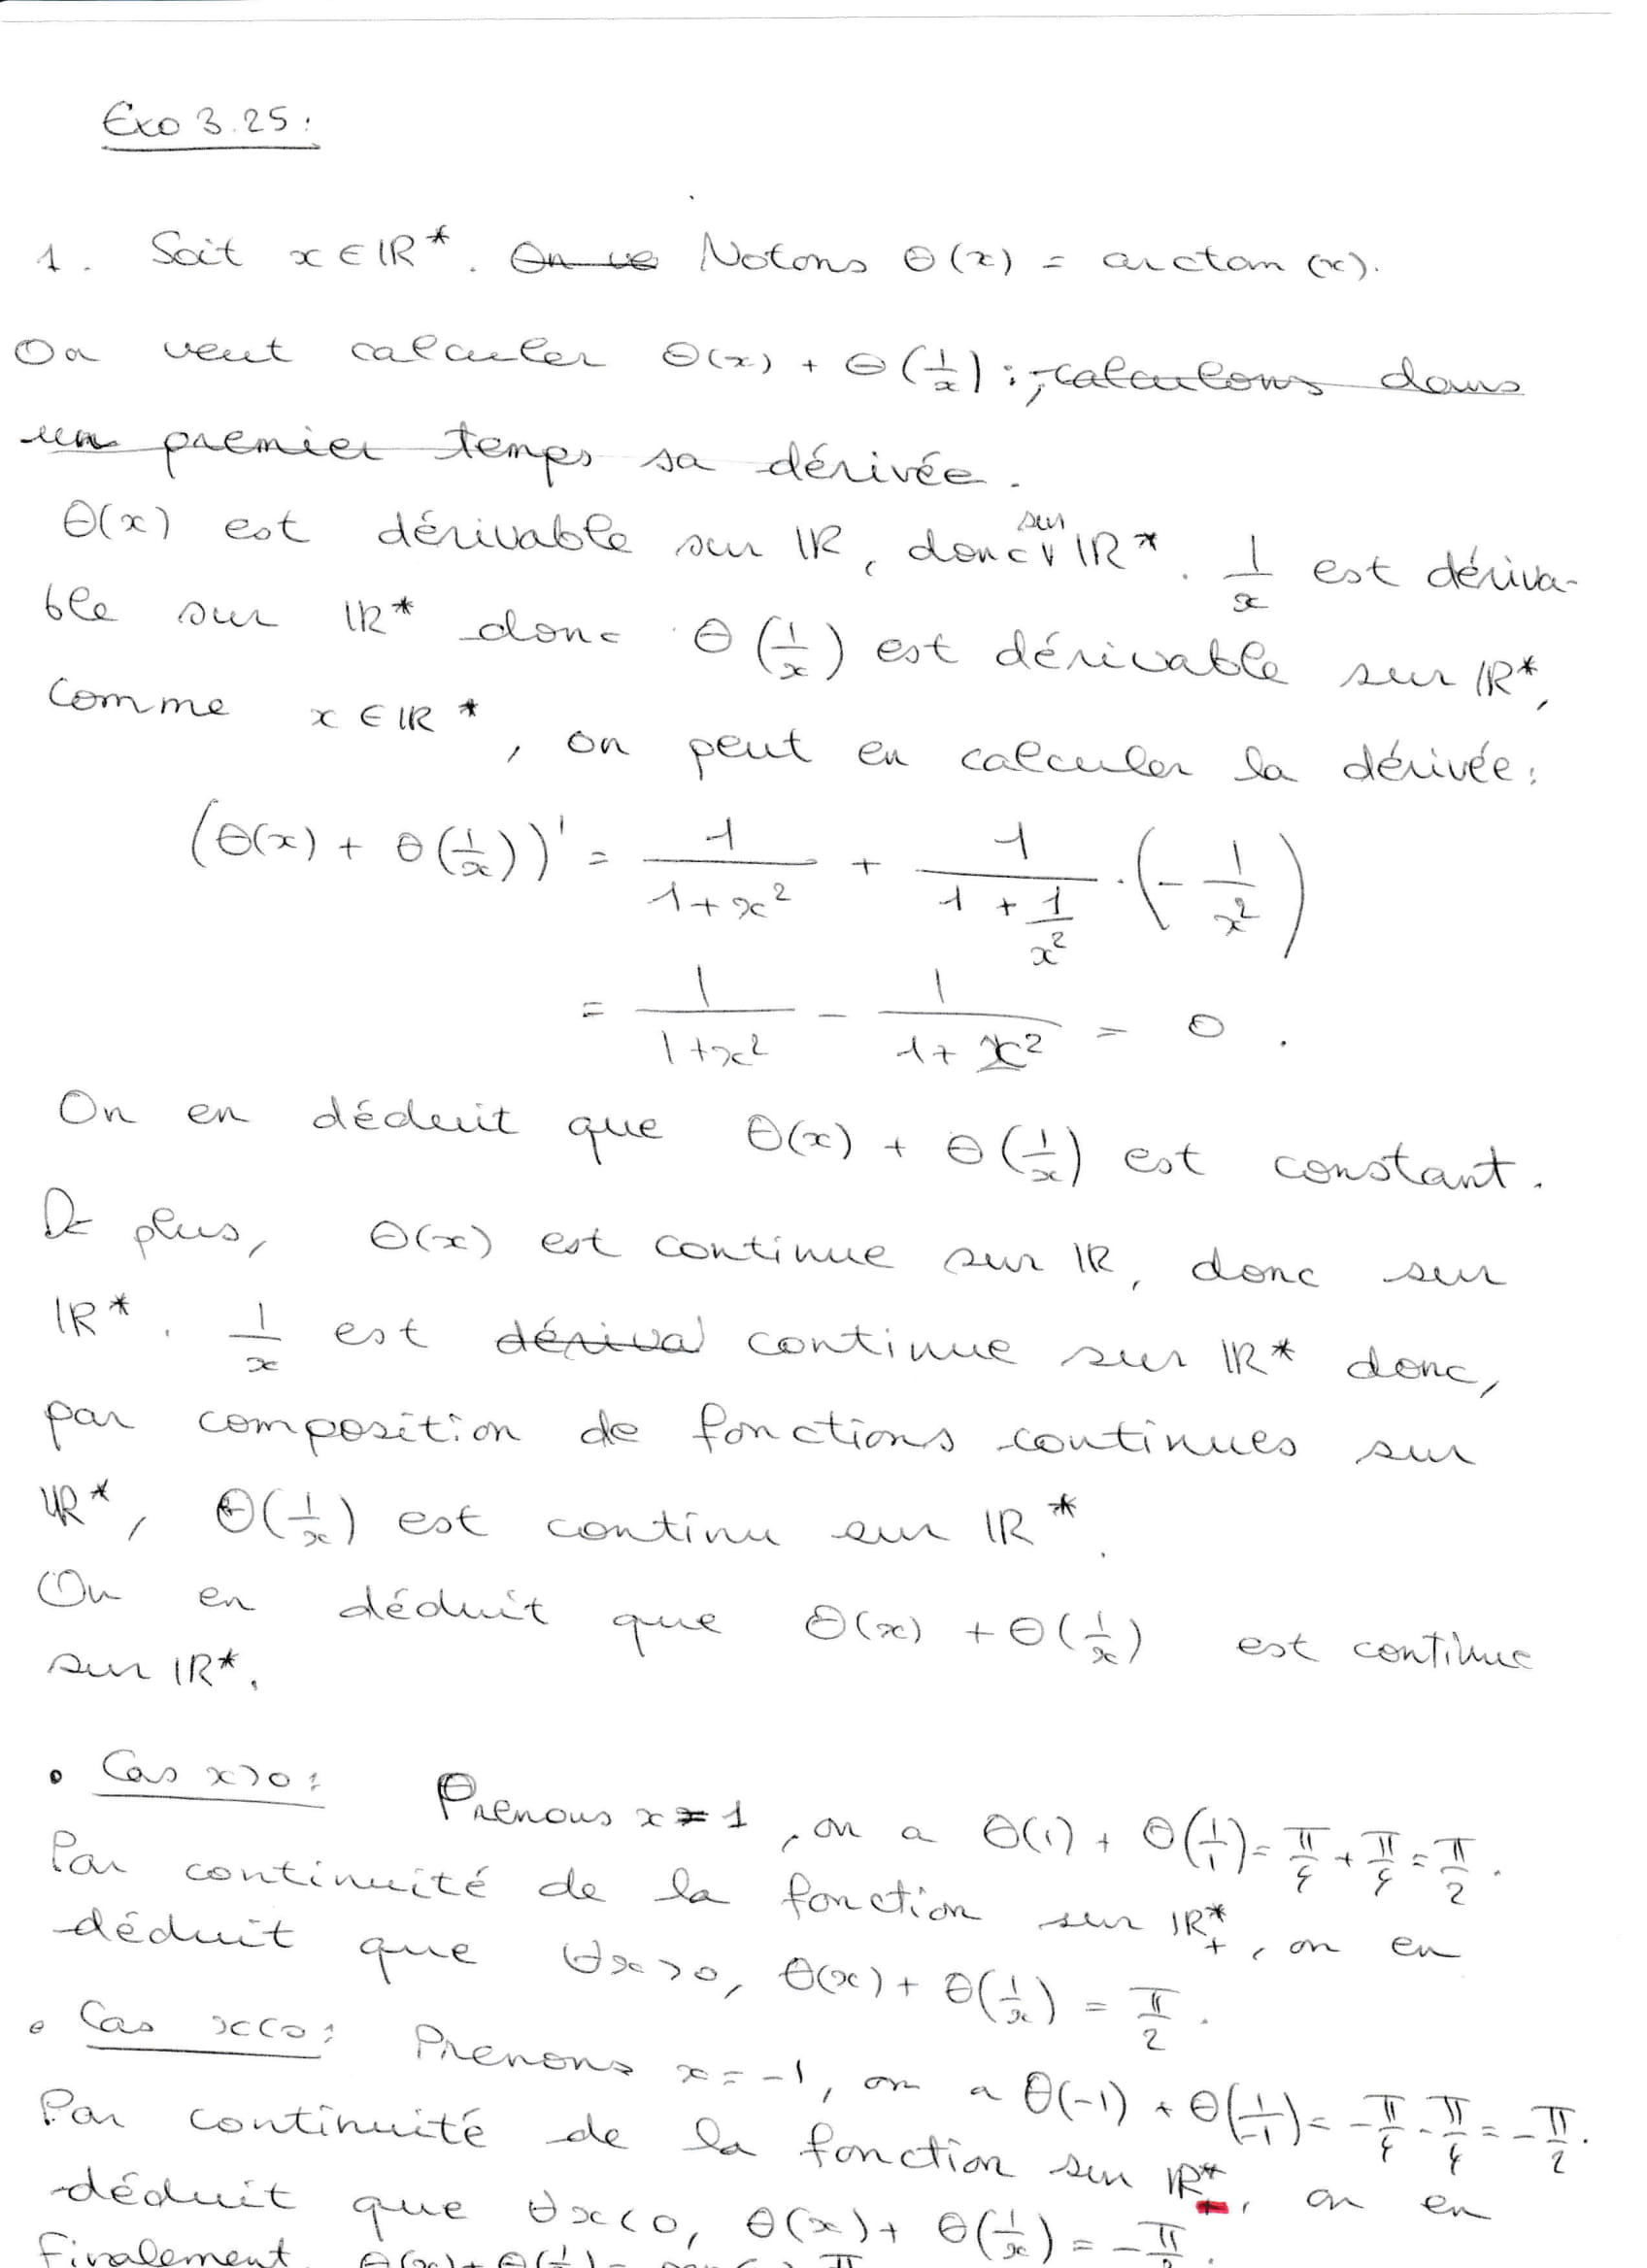 Exo 3.25:
1. Soit x ∈ ℝ*. On ve Notons θ(x) = arctan(x).
On veut calculer θ(x) + θ(1/x) : , calculons dans
un premier temps sa dérivée.
θ(x) est dérivable sur ℝ, donc sur ℝ*. 1/x est dériva-
ble sur ℝ* donc θ(1/x) est dérivable sur ℝ*,
comme x ∈ ℝ*, on peut en calculer la dérivée:
(θ(x) + θ(1/x))' = 1/(1+x²) + 1/(1+1/x²) · (-1/x²)
= 1/(1+x²) - 1/(1+x²) = 0.
On en déduit que θ(x) + θ(1/x) est constant.
De plus, θ(x) est continue sur ℝ, donc sur
ℝ*. 1/x est dériva continue sur ℝ* donc,
par composition de fonctions continues sur
ℝ*, θ(1/x) est continu sur ℝ*.
On en déduit que θ(x) + θ(1/x) est continue
sur ℝ*.
• Cas x>0: Prenons x=1, on a θ(1) + θ(1/1) = π/4 + π/4 = π/2.
Par continuité de la fonction sur ℝ*₊, on en
déduit que ∀x>0, θ(x) + θ(1/x) = π/2.
• Cas x<0: Prenons x=-1, on a θ(-1) + θ(1/-1) = -π/4 - π/4 = -π/2.
Par continuité de la fonction sur ℝ*₋, on en
déduit que ∀x<0, θ(x) + θ(1/x) = -π/2.
Finalement, θ(x) + θ(1/x) =